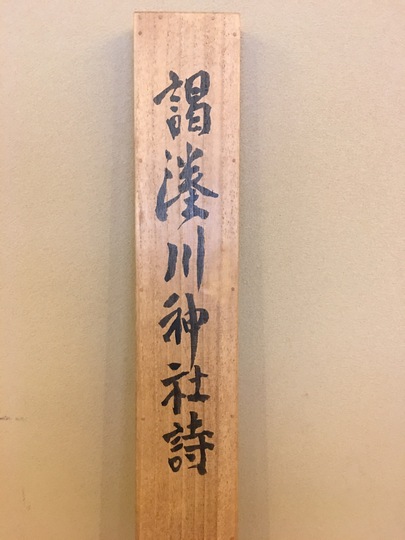 謁湊川神社詩